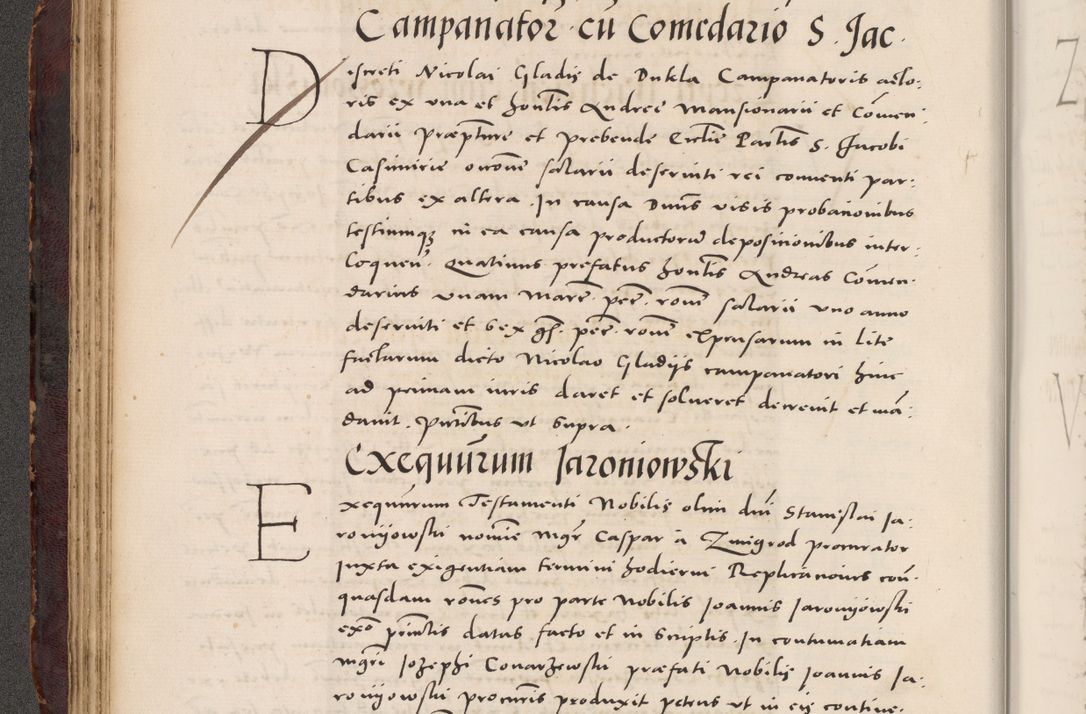 Campanator cū Comedario S. Jac.
Discreti Nicolai Gladÿs de Dukla Campanatoris acto:
ris ex una et hon̄tis Andree Mansionarii et Cōmen:
darii Præpture et prebende Eccliæ Paroch S. Jacobi
Casimirie or̄oue salarii deserviti rei conventi par:
tibus ex altera. In causa Dnūs visis probacionibus
testiumq in ea causa productorū deposicionibus inter:
loquen. Quatinus prefatus hon̄tis Andreas Cōmen-
darius unam Mare. pec. rone salarii uno anno
deserviti et sex gs. pec. rone expensarum in lite
factarum dicto Nicolao Gladÿs campanatori hinc
ad primam iuris daret et solveret decrevit et mā:
davit. Pntibus ut supra.
Exequūrum Jaroniowski
Exequūrum Testamenti Nobilis olim dni Stanislai Ja:
ronÿowski noīe Mgr Caspar à Zmigrod procurator
juxta exigentiam termini hodierni Replicacioni con-
quasdam rones pro parte Nobilis Joannis Jaronÿowski
datas facto et in scriptis. In contumatiam
mgri Jozephi Conarzewski præfati Nobilis Joannis Ja:
ronÿowski procuris produxit petens ut in eis contine-